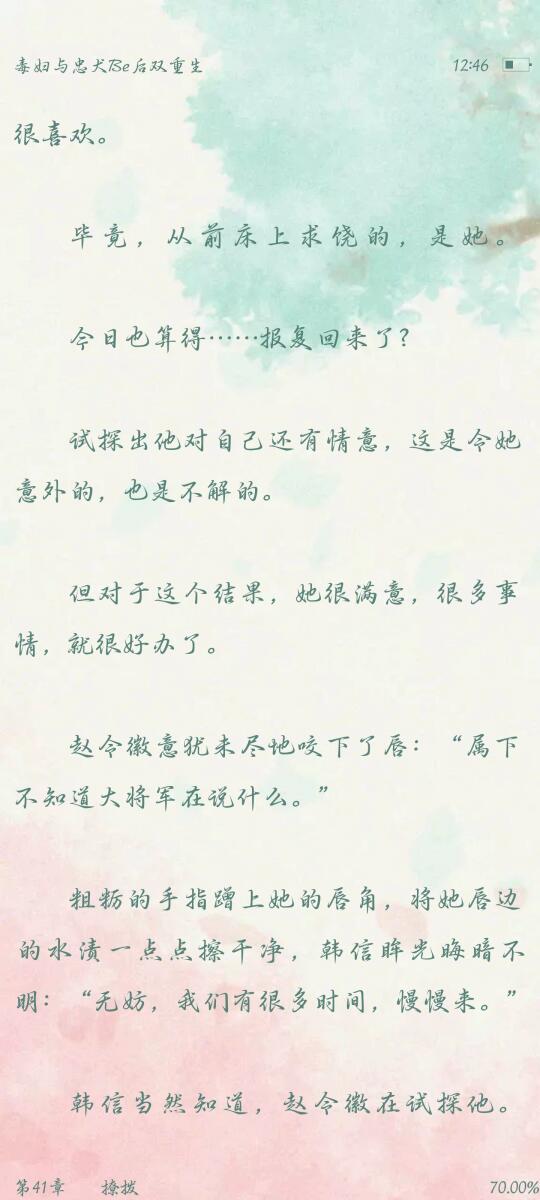 毒妇与忠犬Be后双重生
12:46
很喜欢。
毕竟，从前床上求饶的，是她。
今日也算得……报复回来了？
试探出他对自己还有情意，这是令她
意外的，也是不解的。
但对于这个结果，她很满意，很多事
情，就很好办了。
赵令徽意犹未尽地咬下了唇：“属下
不知道大将军在说什么。”
粗粝的手指蹭上她的唇角，将她唇边
的水渍一点点擦干净，韩信眸光晦暗不
明：“无妨，我们有很多时间，慢慢来。”
韩信当然知道，赵令徽在试探他。
第41章 撩拨
70.00%